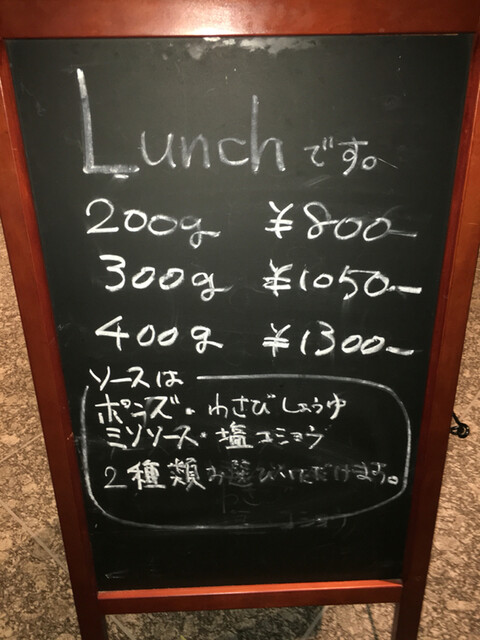 Lunchです。
200g ¥800-
300g ¥1050-
400g ¥1300-
ソースは
ポンズ・わさびしょうゆ
ミソソース・塩コショウ
2種類お選びいただけます。